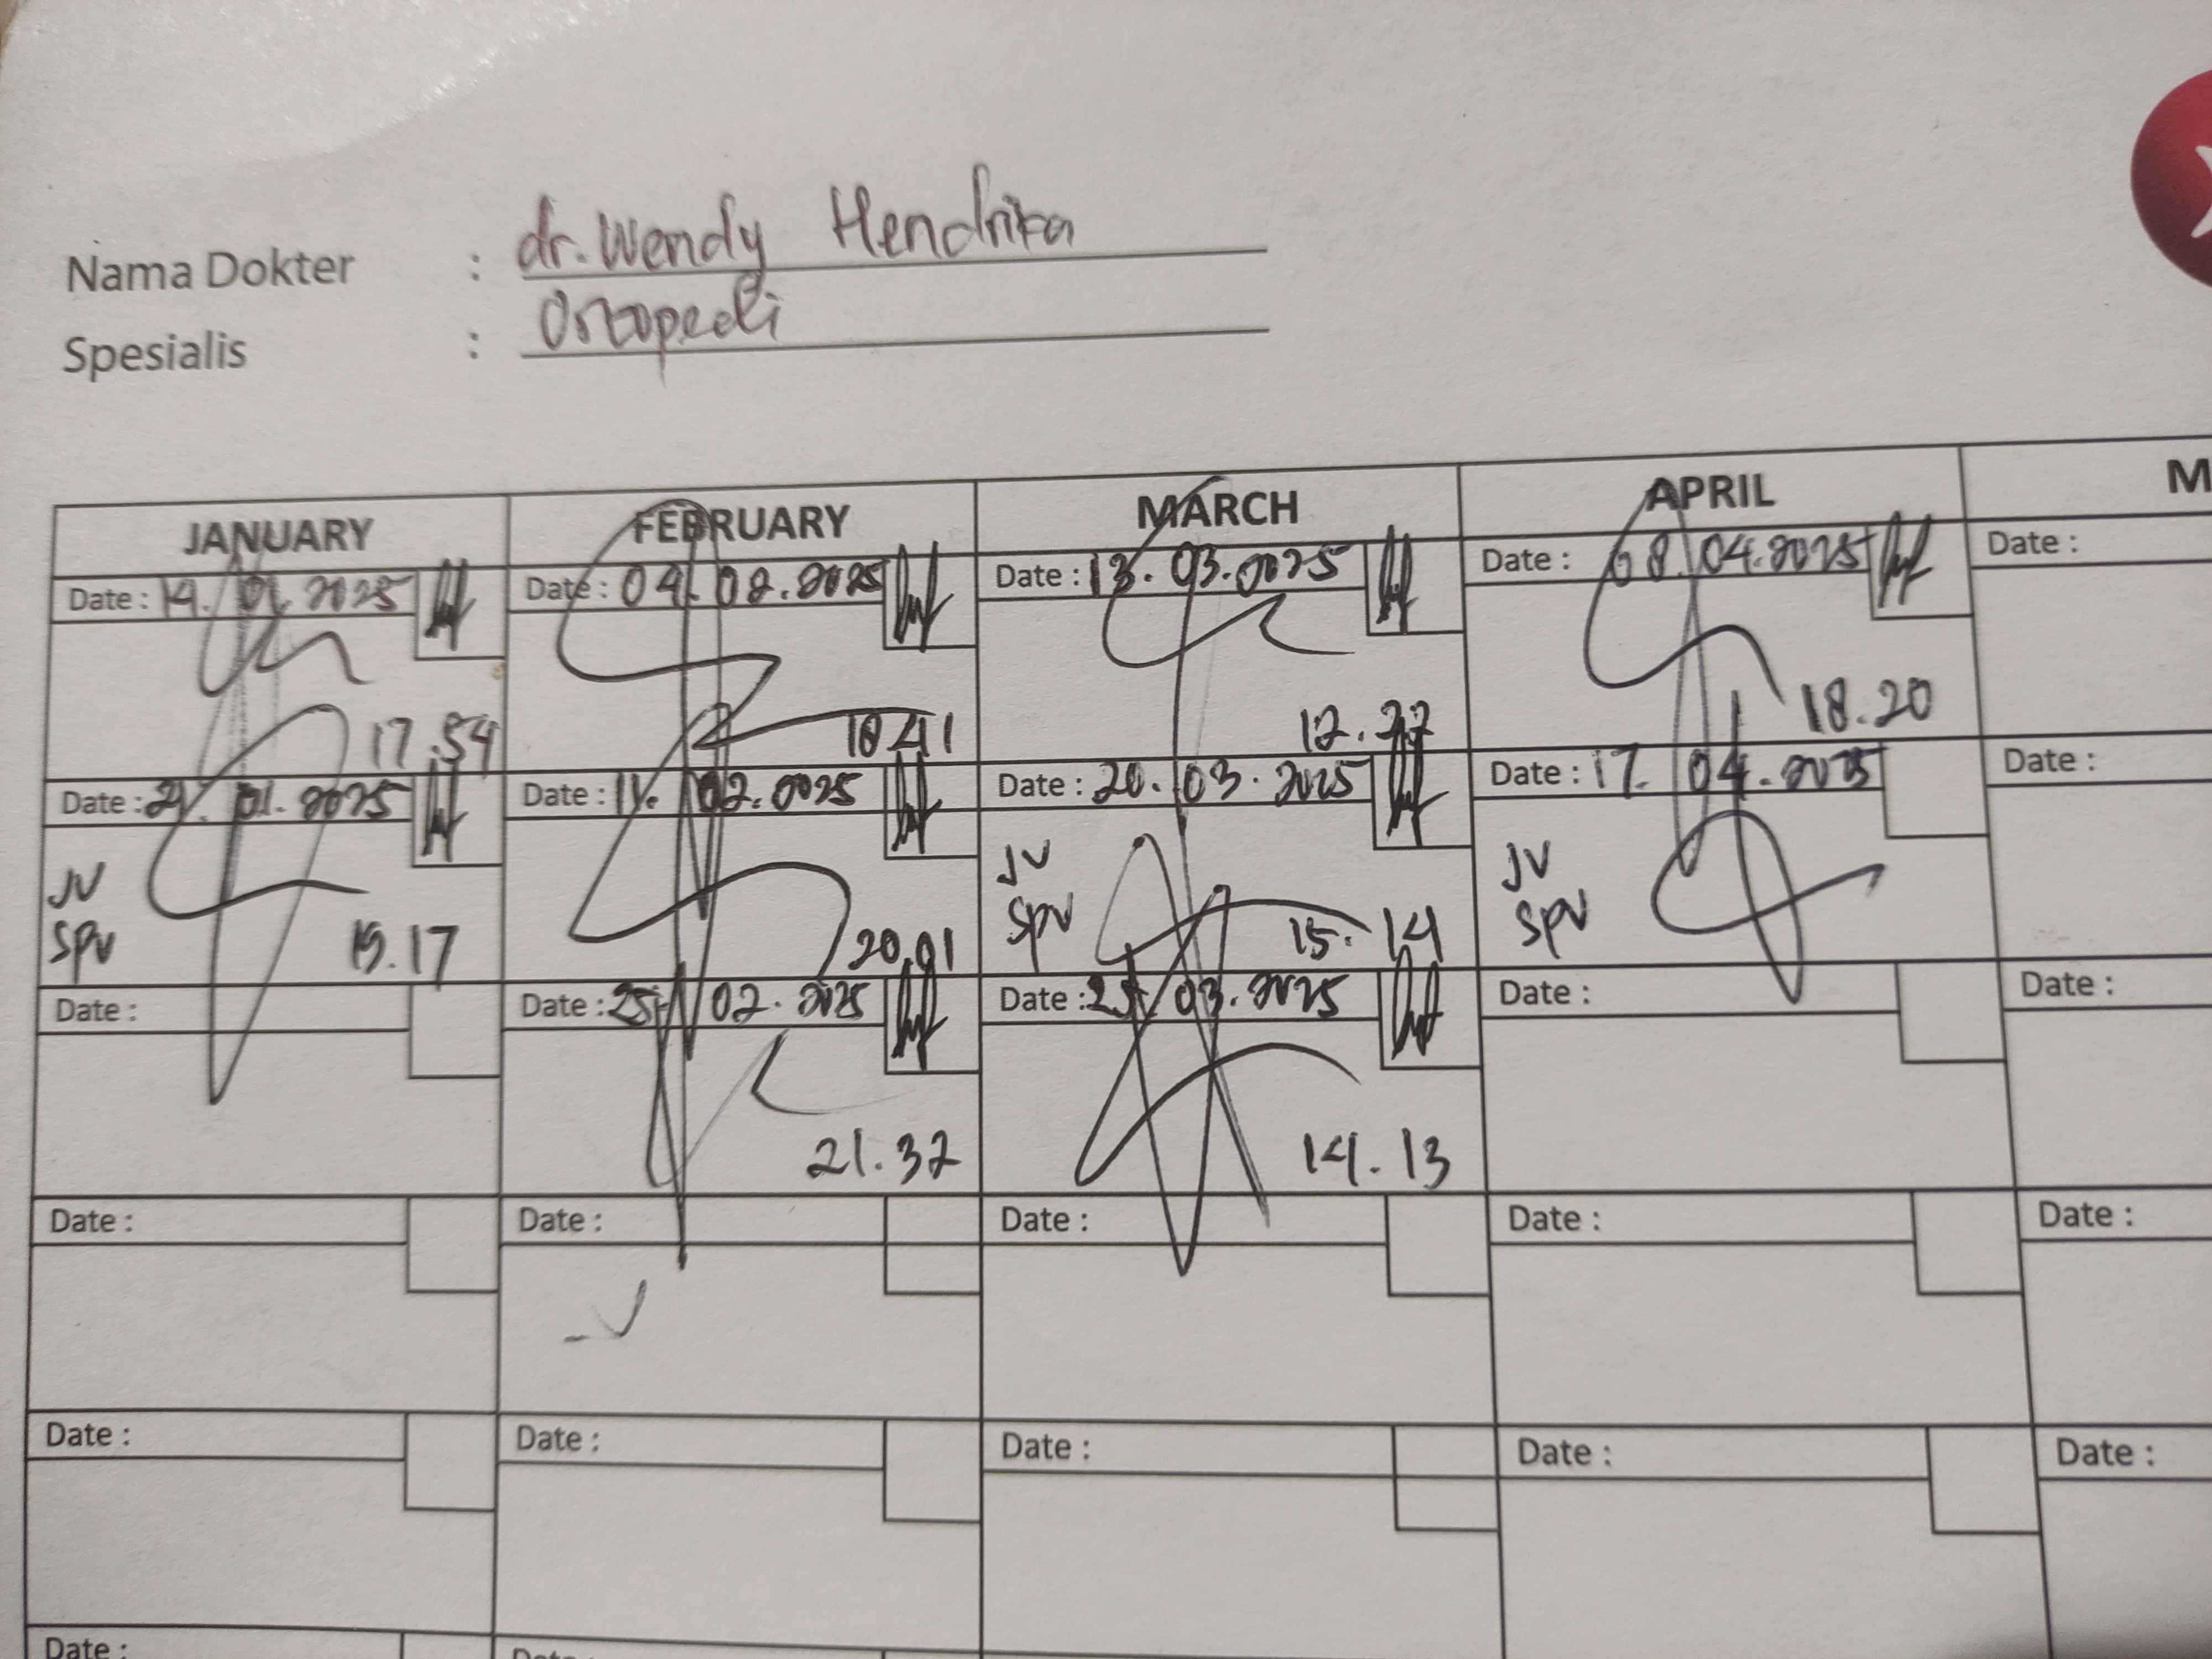 Nama Dokter : dr. Wendy Hendrika
Spesialis : Ortopedi
JANUARY FEBRUARY MARCH APRIL M
Date : 14. 01. 2025 Date : 04. 02. 2025 Date : 13. 03. 2025 Date : 08. 04. 2025 Date :
17.54 18.41 12. 18.20
Date : 21. 01. 2025 Date : 11. 02. 2025 Date : 20. 03. 2025 Date : 17. 04. 2025 Date :
JV JV JV
Spv 19.17 20.01 Spv 15.14 Spv
Date : Date : 25. 02. 2025 Date : 25. 03. 2025 Date : Date :
21.32 14.13
Date : Date : Date : Date : Date :
Date : Date : Date : Date : Date :
Date :